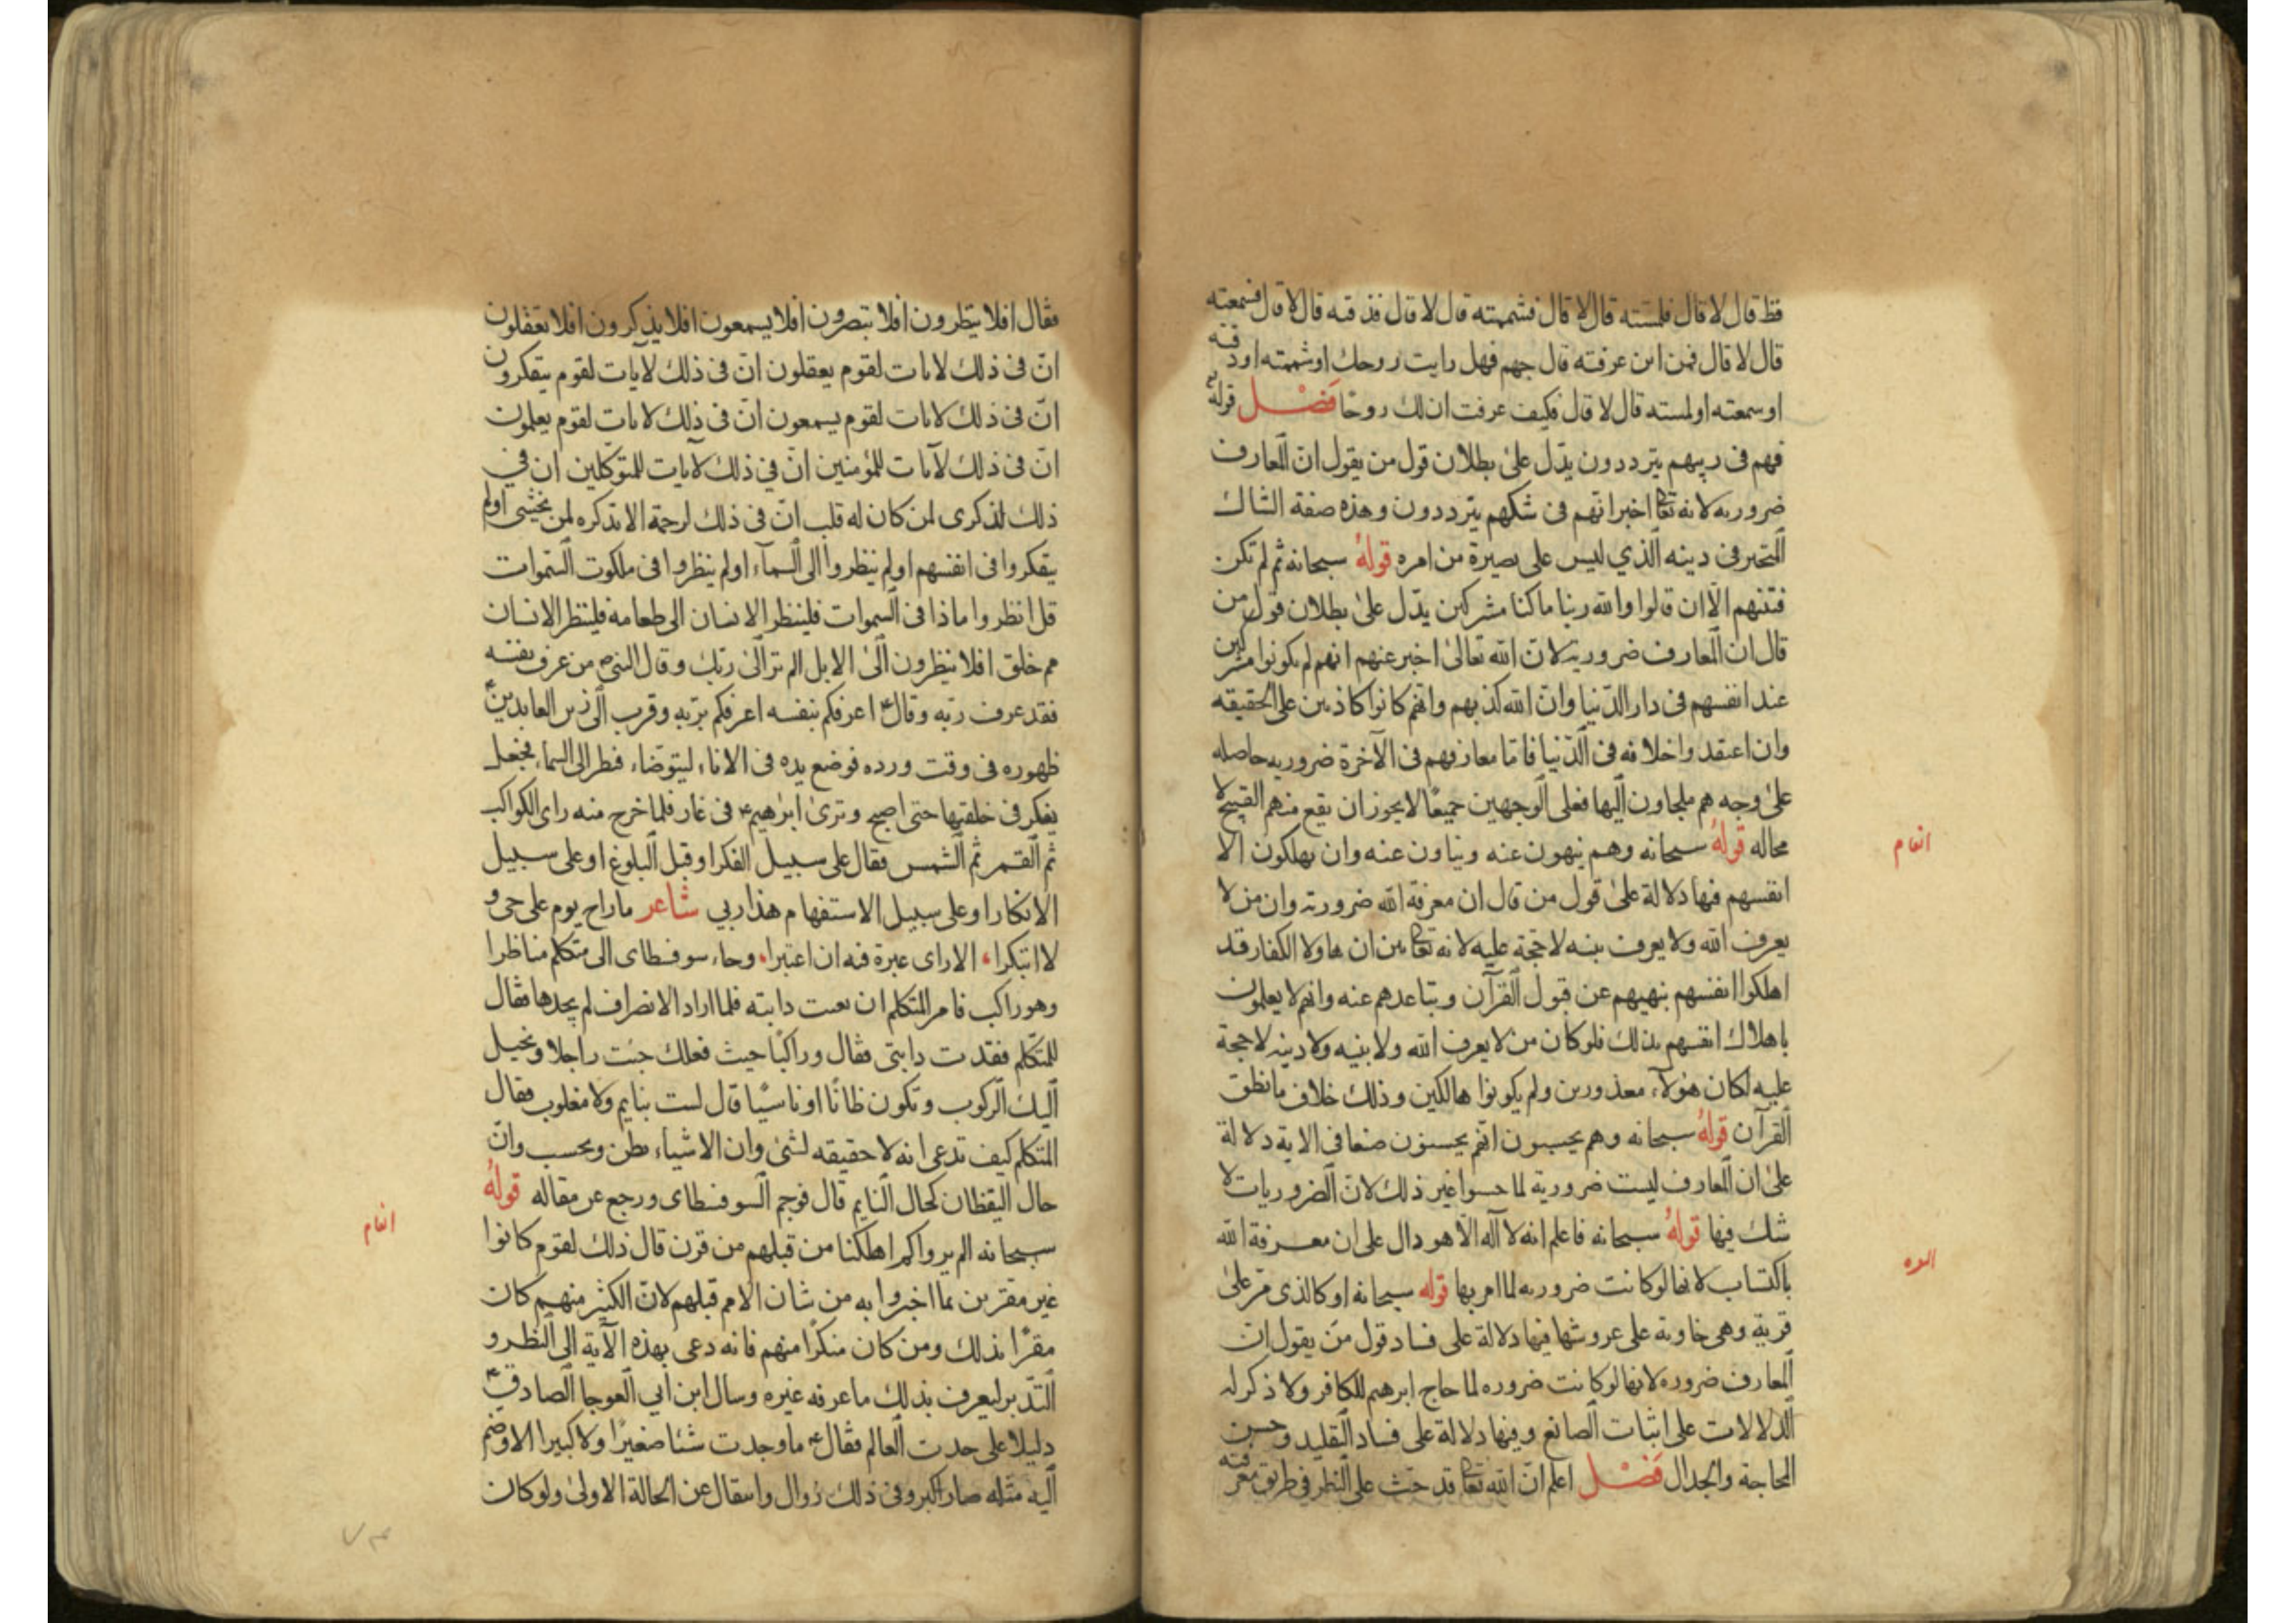 قط قال لا قال فلمسته قال لا قال فشممته قال لا قال فذقته قال لا قال فسمعته
قال لا قال فمن اين عرفته قال جهم فهل رايت روحك او شممته او ذقته
او سمعته او لمسته قال لا قال فكيف عرفت ان لك روحًا فَصْل قوله تع
فهم فى ريبهم يترددون يدّل علىٰ بطلان قول من يقول انّ المعارف
ضروريه لانه تعا اخبر انهم فى شكهم يترددون وهذه صفة الشاك
المتحير فى دينه الّذي ليس على بصيرة من امره قولهُ سبحانه ثم لم تكن
فتنتهم الّا ان قالوا والله ربنا ما كنا مشركين يدّل علىٰ بطلان قول من
قال ان المعارف ضروريه لانّ الله تعالىٰ اخبر عنهم انهم لم يكونوا مشركين
عند انفسهم فى دار الدّنيا وانّ الله كذبهم وانهم كانوا كاذبين على الحقيقه
وان اعتقدوا خلافه فى الدّنيا فامّا معارفهم فى الآخرة ضروريه حاصله
علىٰ وجه هم ملجاون اليها فعلى الوجهين جميعًا لا يجوز ان يقع منهم القبيح لا
محاله قولهُ سبحانه وهم ينهون عنه وينأون عنه وان يهلكون الا
انفسهم فيها دلالة علىٰ قول من قال ان معرفة الله ضرورته وان من لا
يعرف الله ولا يعرف نبيه لا حجّة عليه لانه تعا بين ان هاولا الكفار قد
اهلكوا انفسهم بنهيهم عن قبول القرآن وبتاعدهم عنه وانهم لا يعلمون
باهلاك انفسهم بذلك فلو كان من لا يعرف الله ولا نبيه ولا دينه لا حجة
عليه لكان هؤلآء معذورين ولم يكونوا هالكين وذلك خلاف ما نطق
القرآن قولهُ سبحانه وهم يحسبون انهم يحسنون صنعا فى الاية دلالة
علىٰ ان المعارف ليست ضرورية لما حسبوا غير ذلك لانّ الضروريات لا
شك فيها قولهُ سبحانه فاعلم انه لا اله الّا هو دال على ان معرفة الله
باكتساب لانها لو كانت ضروريه لما امر بها قوله سبحانه او كالذى مرّ علىٰ
قرية وهى خاوية على عروشها فيها دلالة على فساد قول من يقول انّ
المعارف ضروره لانها لو كانت ضروره لما حاج ابرهيم للكافر ولا ذكر له
الدلالات على اثبات الصانع وفيها دلالة على فساد التقليد وحسن
المحاجة والجدال فَصْل اعلم انّ الله تعا قد حثّ على النظر فى طريق معرفته
انعام
البقره
فقال افلا ينظرون افلا تبصرون افلا يسمعون افلا يذكرون افلا تعقلون
انّ فى ذلك لايات لقوم يعقلون انّ فى ذلك لآيات لقوم يتفكرون
انّ فى ذلك لايات لقوم يسمعون انّ فى ذلك لايات لقوم يعلمون
انّ فى ذلك لآيات للمؤمنين انّ في ذلك لآيات للمتوكلين ان في
ذلك لذكرى لمن كان له قلب انّ فى ذلك لرحمة الا تذكره لمن يخشى اولم
يتفكروا فى انفسهم اولم ينظروا الى السمآء اولم ينظروا فى ملكوت السّموات
قل انظروا ماذا فى السموات فلينظر الانسان الى طعامه فلينظر الانسان
مم خلق افلا ينظرون الىٰ الابل الم تر الىٰ ربّك وقال النبى ص من عرف نفسه
فقد عرف ربّه وقال ع اعرفكم بنفسه اعرفكم بربّه وقرب الى زين العابدين ع
ظهوره فى وقت ورده فوضع يده فى الاناء ليتوضاء فنظر الى السماء فجعل
يفكر فى خلقها حتى اصبح وترىٰ ابرٰهيم ع فى غار فلما خرج منه راى الكواكب
ثم القمر ثم الشمس فقال على سبيل الفكر او قبل البلوغ او على سبيل
الانكار او على سبيل الاستفهام هذا ربي شاعر ما راح يوم على حى و
لا ابتكرا، الا راى عبرة فيه ان اعتبرا، وجاء سوفسطاى الى متكلم مناظرا
وهو راكب فامر المتكلم ان دابته فلما اراد الانصراف لم يجدها فقال
للمتكلم فقدت دابتى فقال وراكبًا جيت فعلك جئت راجلا وتخيل
اليك الركوب وتكون ظانًا او ناسيًا قال لست بنايم ولا مغلوب فقال
المتكلم كيف تدعى انه لا حقيقه لشئ وان الاشياء بظن وتحسب وانّ
حال اليقظان كحال النايم قال فوجم السوفسطاى ورجع عن مقاله قولهُ
سبحانه الم يروا كم اهلكنا من قبلهم من قرن قال ذلك لقوم كانوا
غير مقرين بما اخبروا به من شان الامم قبلهم لانّ الكثير منهم كان
مقرًا بذلك ومن كان منكرًا منهم فانه دعى بهذه الآية الى النظر و
التدّبر ليعرف بذلك ما عرفه غيره وسال ابن ابي العوجا الصادق ع
دليلا على حدث العالم فقال ع ما وجدت شيئا صغيرًا ولا كبيرا الا وضم
اليه مثله صار اكبر وفى ذلك زوال وانتقال عن الحالة الاولىٰ ولو كان
انعام